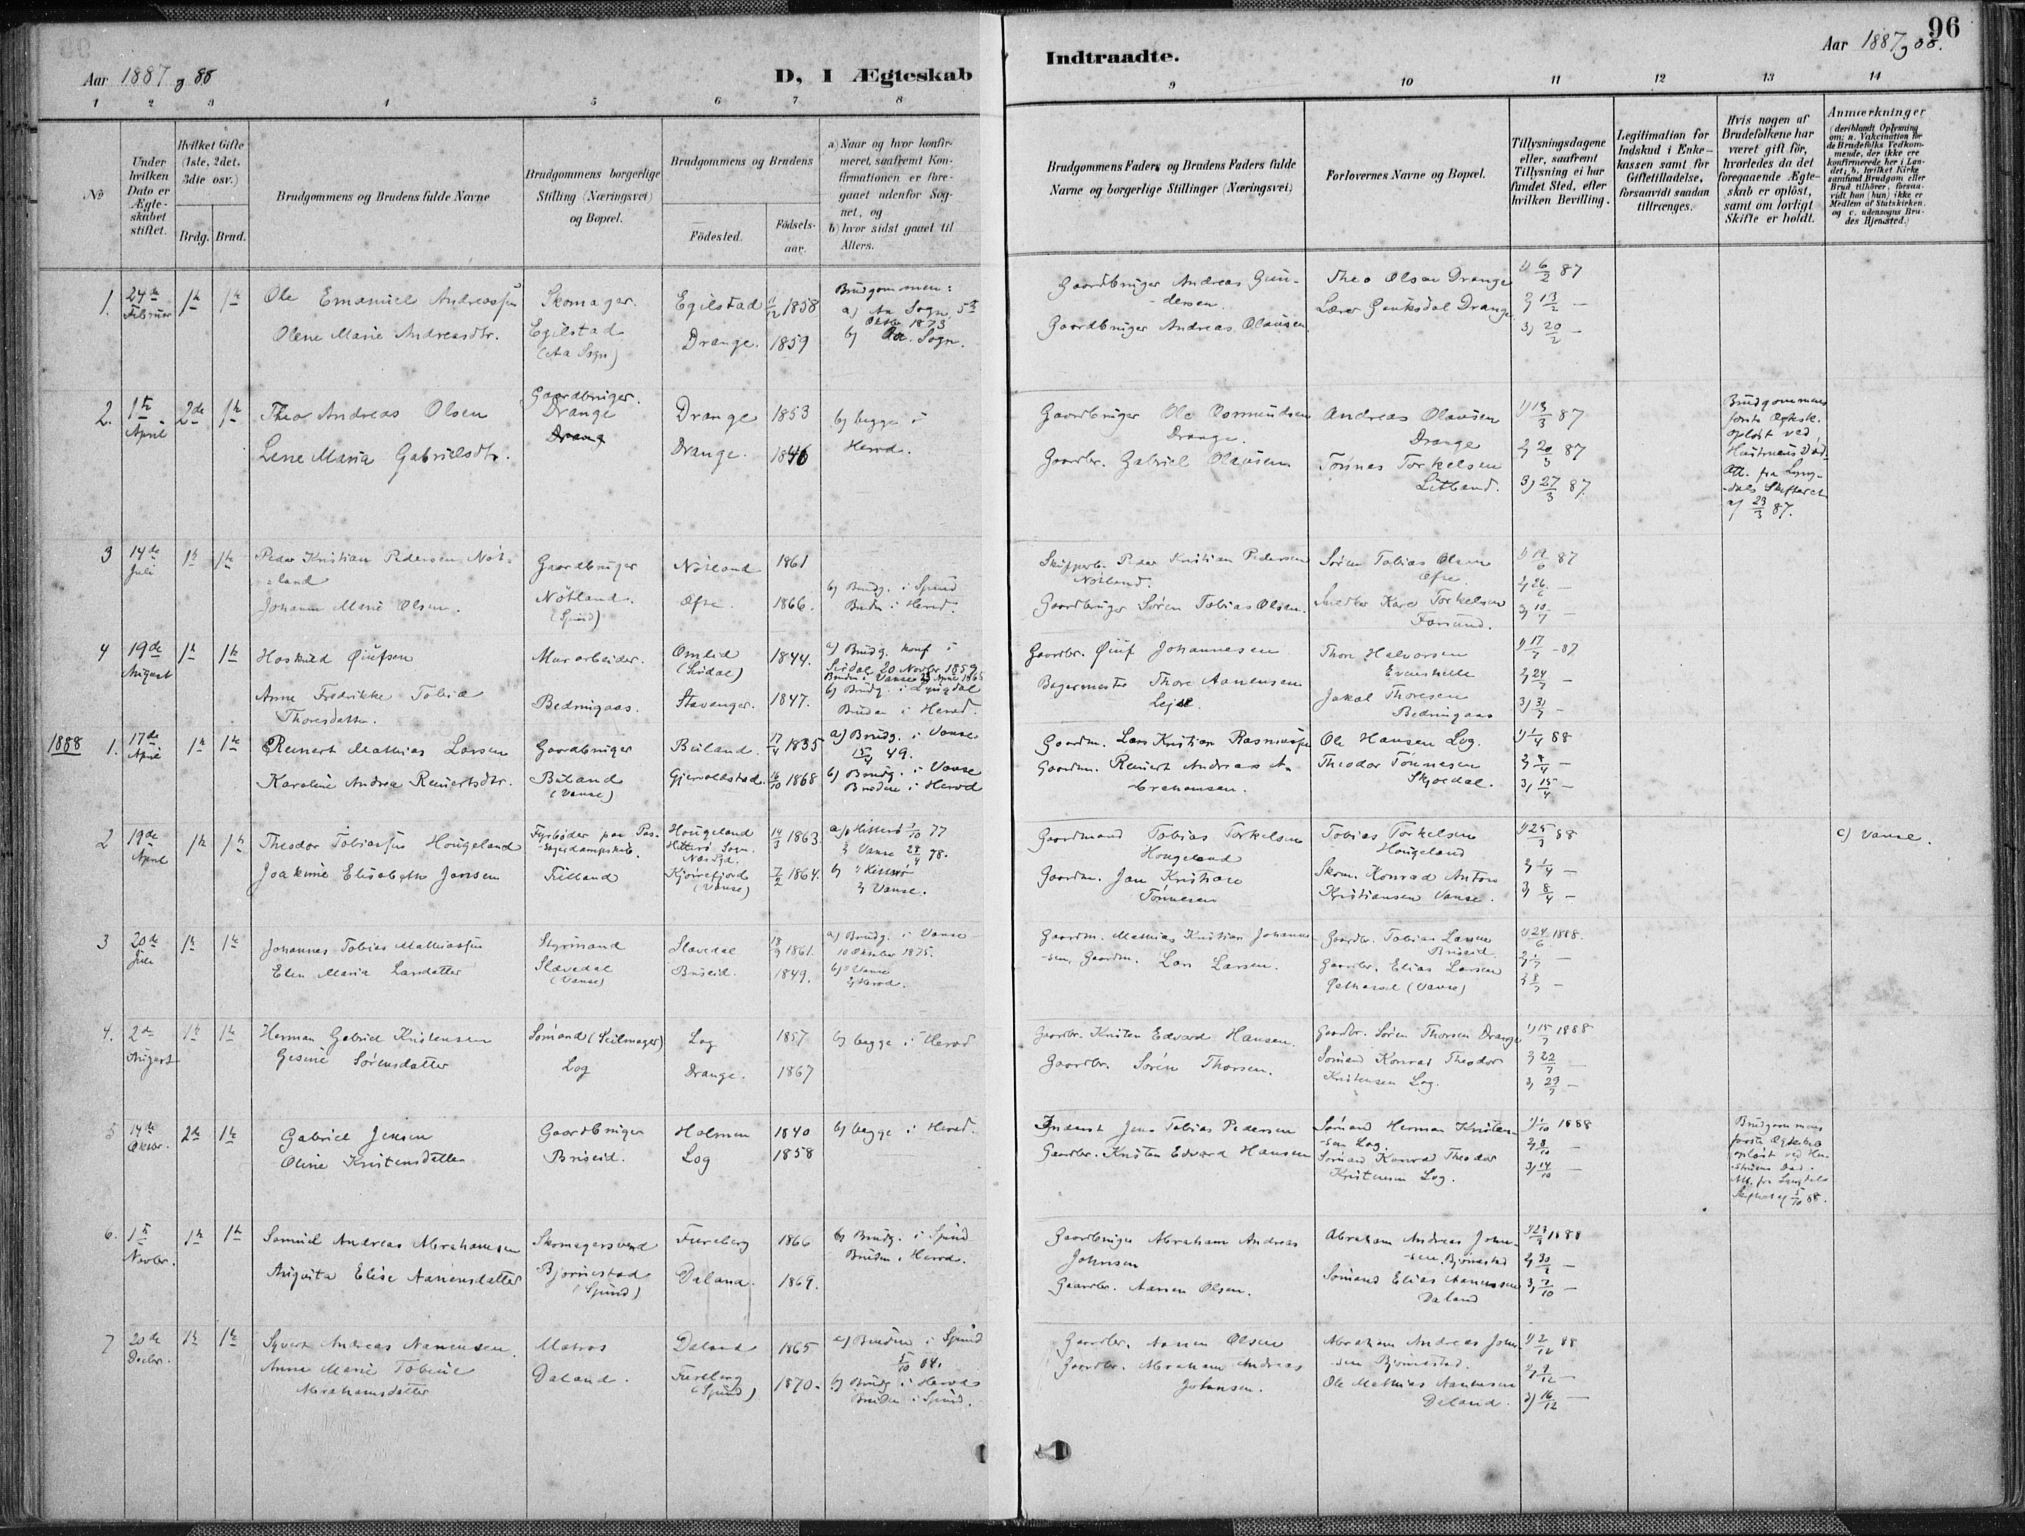 96
Aar 1887 og 88
D, I Ægteskab
Indtraadte.
Aar 1887 og 88.
1 2 3 4 5 6 7 8 9 10 11 12 13 14
No
Under hvilken Dato er Ægteskabet stiftet.
Hvilket Gifte (1ste, 2det, 3die osv.)
Brdg. Brud.
Brudgommens og Brudens fulde Navne
Brudgommens borgerlige Stilling (Næringsvei) og Bopæl.
Brudgommens og Brudens
Födested.
Födselsaar.
a) Naar og hvor konfirmeret, saafremt Konfirmationen er foregaaet udenfor Sognet, og
b) hvor sidst gaaet til Alters.
Brudgommens Faders og Brudens Faders fulde Navne og borgerlige Stillinger (Næringsvei)
Forlovernes Navne og Bopæl.
Tillysningsdagene eller, saafremt Tillysning ei har fundet Sted, efter hvilken Bevilling.
Legitimation for Indskud i Enkekassen samt for Giftetilladelse, forsaavidt saadan tiltrænges.
Hvis nogen af Brudefolkene har været gift för, hvorledes da det foregaaende Ægteskab er oplöst, samt om lovligt Skifte er holdt.
Anmærkninger
(deriblandt Oplysning om: a. Vakcination for de Brudefolks Vedkommende, der ikke ere konfirmerede her i Landet; b. hvilket Kirkesamfund Brudgom eller Brud tilhörer, forsaavidt han (hun) ikke er Medlem af Statskirken, og c. udensogns Brudes Hjemsted.)
1. 24de Februar 1ste 1ste
Ole Emanuel Andreassen
Olene Marie Andreasdtr.
Skomager.
Egilstad
(Aa Sogn)
Egilstad 11/12 1858
Drange. 1859
Brudgommen:
a) Aa Sogn, 5te Oktbr. 1873
b) Aa Sogn.
Gaardbruger Andreas Gundersen
Gaardbruger Andreas Olausen
Theo Olsen Drange
Drange
1) 6/2 87
2) 13/2 —
3) 20/2 —
2. 1ste April 2de 1ste
Theo Andreas Olsen
Lene Maria Gabrielsdtr.
Gaardbruger.
Drange
Drange 1853
Drange. 1846
b) begge i Herad.
Gaardbruger Ole Aasmundsen Drange.
Gaardbr. Gabriel Olausen
Andreas Olausen Drange
Tønnes Torkelsen
1) 13/3 87
2) 20/3 87
3) 27/3 87.
Brudgommens første Ægtesk. opløst ved Hustruens Død. Att. fra Lyngdals Skifteret af 23/3 87.
3 14de Juli 1ste 1ste
Peder Kristian Pedersen Nötland
Johanne Marie Olsen.
Gaardbruger
Nötland.
(Spind)
Nötland 1861
Øfre. 1866.
b) Brudg. i Spind
Bruden i Herad.
Peder Kristian Pedersen Nötland.
Gaardbruger Sören Tobias Olsen.
Sören Tobias Olsen Øfre.
Torkelsen Farsund.
87
2) 26/6 —
3) 10/7 —
4 19de August 1ste 1ste
Anne Fredrikke Tobia Thoresdatter.
Murarbeider.
Omlid (Sirdal) 1844.
Stavanger. 1847.
a) Brudg. konf i Sirdal 20 Novbr 1859
b) Brudg. i Lyngdal
Bruden i Herad.
Gaardbr. Johannesen
Bagermester Thore Aanensen
Thore Halvorsen
Jakob Thoresen
1) 17/7 —87
2) 24/7 —
3) 31/7 —
1888
1. 17de April 1ste 1ste
Reinert Mathias Larsen
Karoline Andrea Reinertsdtr.
Gaardbruger
Biland
(Vanse)
Beiland. 17/4 1835
Gjervoldstad. 16/10 1868
a) Brudg. i Vanse
15/4 49.
b) Brudg. i Vanse
Bruden i Herad
Gaardm. Lars Kristian Rasmussen
Gaardm. Reinert Andreas Abrahamsen.
Ole Hansen Log.
Theodor Tönnesen Skjoldal.
1) 1/4 88
2) 8/4 —
3) 15/4 —
2 19de April 1ste 1ste
Theodor Tobiassen Hougeland
Joakime Elisabeth Jansen
Fyrböder paa Passagerdampskib.
Hougeland Hitterö Sogn. 14/3 1863.
Kjörrefjord (Vanse) 7/2 1864.
a) 1) Hitterö 7/10 77
2) Vanse 28/4 78.
b) 1) Hitterö
2) Vanse.
Gaardmand Tobias Torkelsen Hougeland
Gaardm. Jan Kristian Tönnesen
Tobias Torkelsen Hougeland
Skom. Konrad Anton Kristiansen Vanse.
1) 25/3 88
2) 1/4 —
3) 8/4 —
c) Vanse.
3 20de Juli 1ste 1ste
Johannes Tobias Mathiassen
Elen Maria Larsdatter
Styrmand
Slævedal
(Vanse)
Slævedal 1861.
Briseid. 1849.
a) Brudg. i Vanse
10 Oktober 1875.
b) 1) Vanse
2) Herad.
Gaardm. Mathias Kristian Johannessen,
Gaardm. Lars Larsen.
Gaardbr. Tobias Larsen Briseid.
Gaardbr. Elias Larsen
(Vanse)
1) 24/6 1888.
2) 1/7 —
3) 8/7 —
4. 2de August 1ste 1ste
Herman Gabriel Kristensen
Gesine Sörensdatter
Sömand (Seilmager)
Log
Log 1857
Drange. 1867
b) begge i Herad
Gaardbr. Kristen Edvard Hansen.
Gaardbr. Sören Thorsen.
Gaardbr. Sören Thorsen Drange
Sömand Konrad Theodor Kristensen Log.
1) 15/7 1888
2) 22/7 —
3) 29/7 —
5 14de Oktbr. 2de 1ste
Gabriel Jensen
Oline Kristensdatter
Gaardbruger
Briseid.
Holmen 1840
Log 1858
b) begge i Herad.
Inderst Jens Tobias Pedersen
Gaardbr. Kristen Edvard Hansen
Sömand Herman Kristensen Log.
Sömand Konrad Theodor Kristensen Log.
1) 1/10 1888
2) 8/10 —
3) 14/10 —
Brudgommens første Ægteskab opløst ved Hustruens Død. Att. fra Lyngdals Skifteret af 5/10 88.
6. 1ste Novbr. 1ste 1ste
Samuel Andreas Abrahamsen
Augusta Elise Aanensdatter
Skomagersvend
Bjørnestad
(Spind)
Fureberg 1866
Daland. 1869.
b) Brudg. i Spind
Bruden i Herad.
Gaardbruger Abraham Andreas Johnsen
Gaardbr. Aanen Olsen.
Abraham Andreas Johnsen, Bjørnestad
Sömand Elias Aanensen Daland
1) 23/9 1888
2) 30/9 —
3) 7/10 —
7 20de Decbr. 1ste 1ste
Syvert Andreas Aanensen.
Anne Marie Tobine Abrahamsdatter
Matros
Daland.
Daland 1865
Fureberg (Spind) 1870.
a) Bruden i Spind
5/10 84.
b) Brudg. i Herad
Bruden i Spind.
Gaardbr. Aanen Olsen
Gaardbr. Abraham Andreas Johnsen.
Abraham Andreas Johnsen Bjørnestad.
Ole Mathias Aanensen Daland.
1) 2/12 88
2) 9/12 —
3) 16/12 —